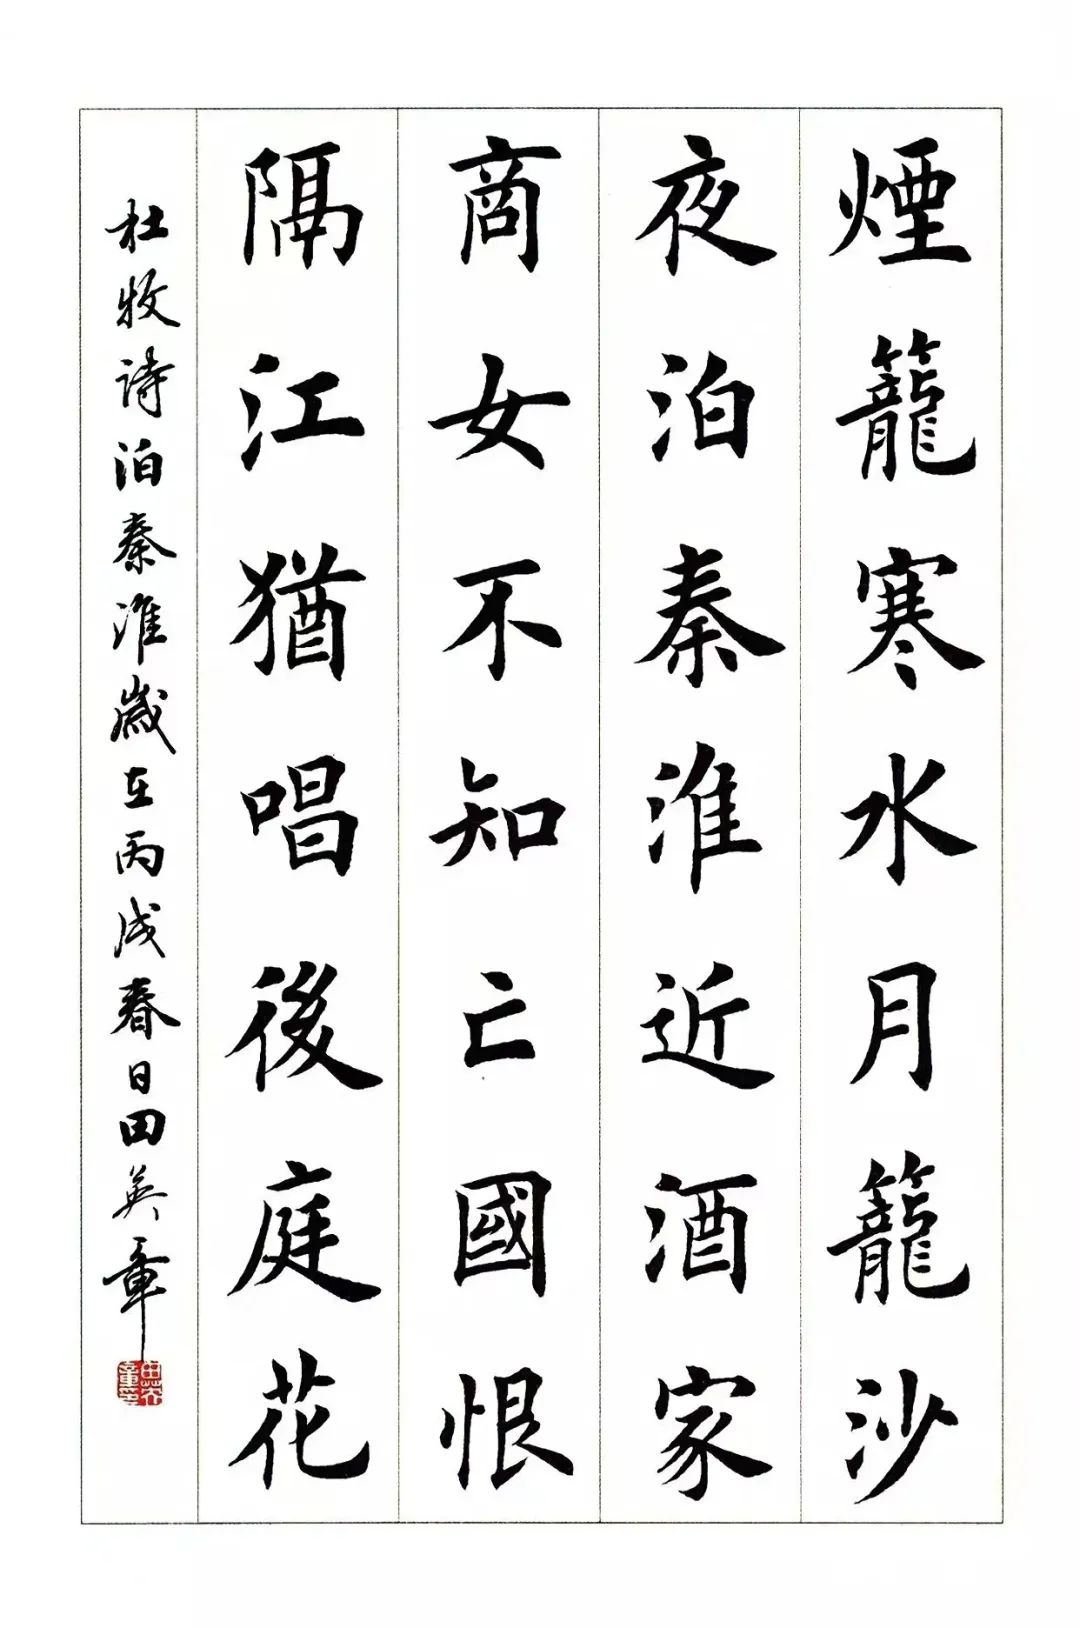 煙籠寒水月籠沙
夜泊秦淮近酒家
商女不知亡國恨
隔江猶唱後庭花
杜牧诗泊秦淮歲在丙戌春日田英章
田英章印